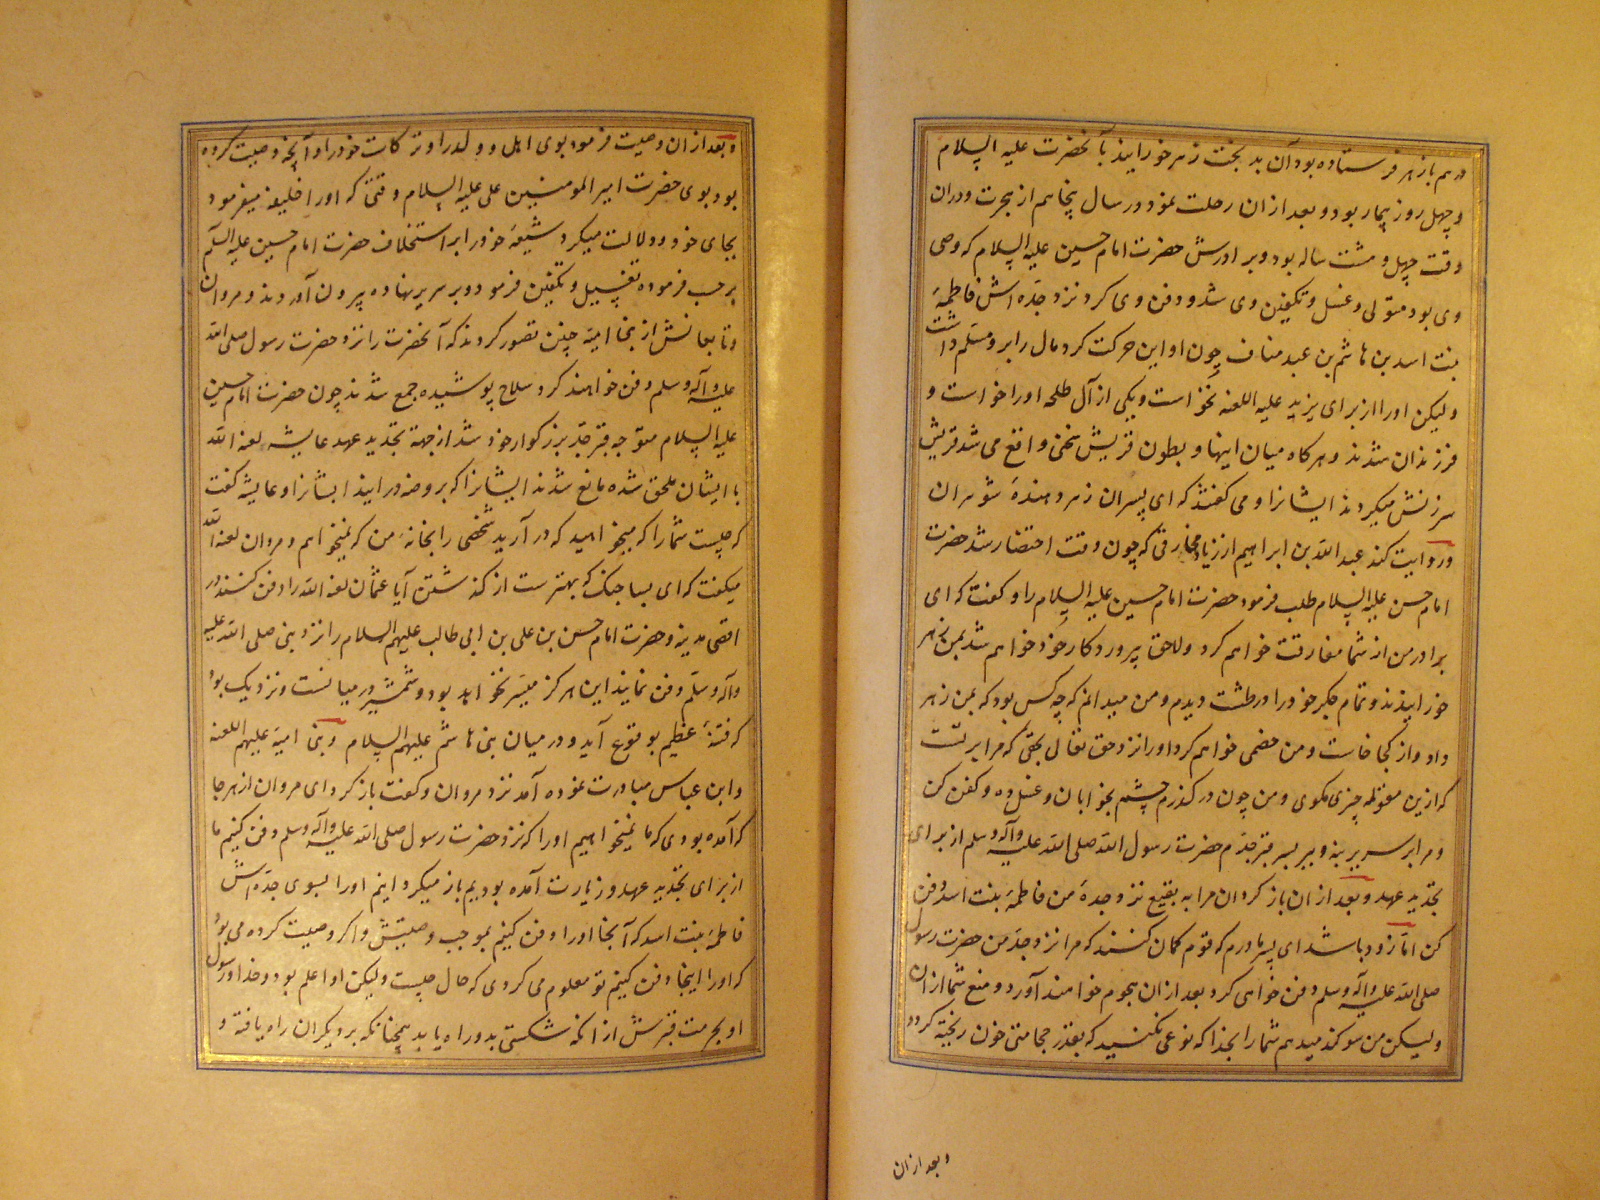 درهم باز هر فرستاده بود آن بدبخت زهر خورانید بآنحضرت علیه السلام
و چهل روز بیمار بود و بعد از ان رحلت نمود در سال پنجاهم از هجرت و در ان
وقت چهل و هشت ساله بود و برادرش حضرت امام حسین علیه السلام که وصی
وی بود متولی و غسل و تکفین وی شد و دفن وی کرد نزد جده اش فاطمهٔ
بنت اسد بن هاشم بن عبد مناف چون او این حرکت کرد مال را برو مسلم داشت
ولیکن او را از برای یزید علیه اللعنه نخواست و یکی از آل طلحه او را خواست و
فرزندان شدند و هر کاه میان اینها و بطون قریش سخن واقع می شد قریش
سرزنش میکردند ایشانرا و می کفتند که ای پسران زهر دهندهٔ شوهران
و روایت کند عبد الله بن ابراهیم از زیاد مخارقی که چون وقت احتضار شد حضرت
امام حسن علیه السلام طلب فرمود حضرت امام حسین علیه السلام را و کفت که ای
برادر من از شما مفارقت خواهم کرد و لاحق پروردکار خود خواهم شد بمن زهر
خورانیدند و تمام جکر خود را در طشت دیدم و من میدانم که چه کس بود که بمن زهر
داد و از کجا خاست و من خصمی خواهم کرد او را نزد حق تعالی بحقی که مرا بر تست
که ازین مقوله چیزی مکوی و من چون در کذرم چشمم بخوابان و غسل ده و کفن کن
و مرا بر سریر بنه و ببر بسر قبر جدم حضرت رسول الله صلی الله علیه وآله وسلم از برای
تجدید عهد و بعد از ان باز کردان مرا به بقیع نزد جدهٔ من فاطمهٔ بنت اسد و دفن
کن اما زود باشد ای پسر مادرم که قوم کمان کنند که مرا نزد جد من حضرت رسول
صلی الله علیه وآله وسلم دفن خواهی کرد بعد از ان هجوم خواهند آورد و منع شما از ان
ولیکن من سوکند میدهم شما را بخدا که نوعی نکنید که بقدر حجامتی خون ریخته کردد
و بعد از ان
و بعد از ان وصیت فرمود بوی اهل و ولد را و ترکات خود را و آنچه وصیت کرده
بود بوی حضرت امیر المومنین علی علیه السلام وقتی که او را خلیفه میفرمود
بجای خود و دلالت میکرد شیعهٔ خود را بر استخلاف حضرت امام حسین علیه السلام
بر حسب فرموده تغسیل و تکفین فرمود و بر سریر نهاده بیرون آوردند و مروان
و تابعانش از بنی امیه چنین تصور کردند که آنحضرت را نزد حضرت رسول صلی الله
علیه وآله وسلم دفن خواهند کرد سلاح پوشیده جمع شدند چون حضرت امام حسین
علیه السلام متوجه قبر جد بزرکوار خود شد از جهة تجدید عهد عایشه لعنه الله
با ایشان ملحق شده مانع شدند ایشانرا که بروضه در ایند ایشانرا و عایشه کفت
که چیست شما را که میخواهید که در آرید شخصی را بخانهٔ من که نمیخواهم و مروان لعنه الله
میکفت که ای بسا جنک که بهتر ست از کذشتن آیا عثمان لعنه الله را دفن کنند در
اقصی مدینه و حضرت امام حسن بن علی بن ابی طالب علیهم السلام را نزد نبی صلی الله علیه
وآله وسلم دفن نمایند این هرکز میسر نخواهد بود و شمشیر در میانست و نزدیک بود
که فتنهٔ عظیم بوقوع آید و در میان بنی هاشم علیهم السلام و بنی امیه علیهم اللعنه
و ابن عباس مبادرت نموده آمد نزد مروان و کفت باز کرد ای مروان از هر جا
که آمده بودی که ما نمیخواهیم او را که نزد حضرت رسول صلی الله علیه وآله وسلم دفن کنیم ما
از برای تجدید عهد و زیارت آمده بودیم باز میکردانیم او را بسوی جده اش
فاطمهٔ بنت اسد که آنجا او را دفن کنیم بموجب وصیتش و اکر وصیت کرده می بود
که او را اینجا دفن کنیم تو معلوم می کردی که حال چیست ولیکن او اعلم بود و خدا و رسول
او بحرمت قبرش از انکه شکستی بدو راه یابد همچنانکه بر دیکران راه یافته و